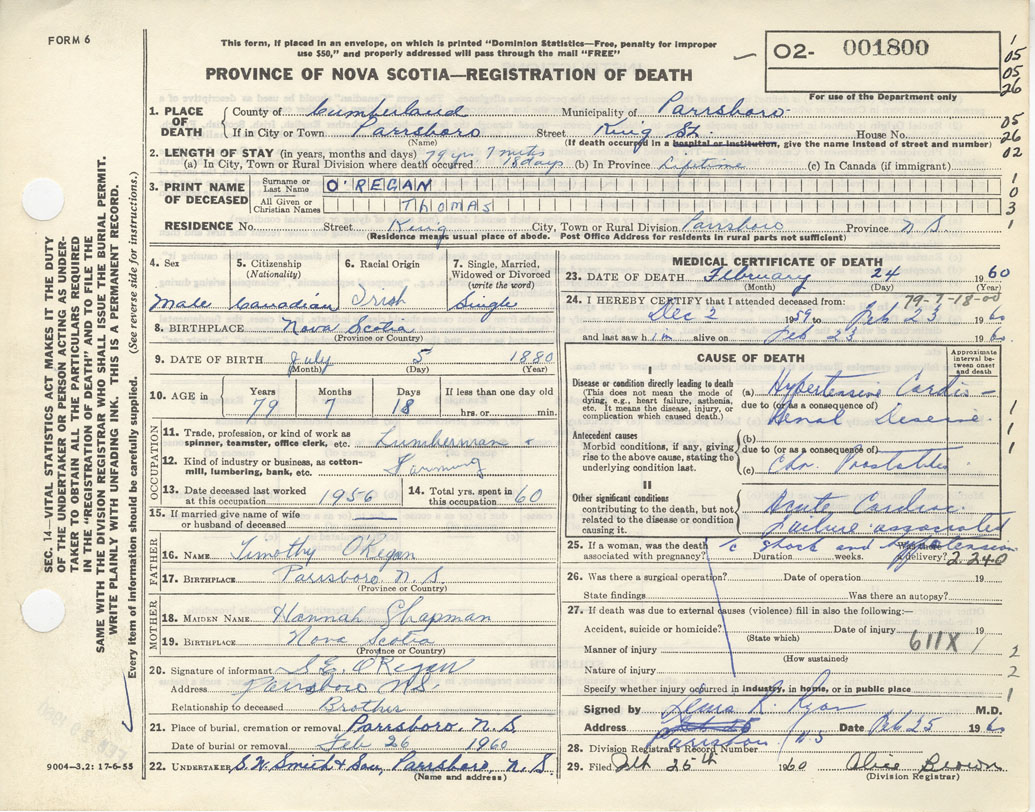 FORM 6
This form, if placed in an envelope, on which is printed "Dominion Statistics—Free, penalty for improper
use $50," and properly addressed will pass through the mail "FREE"
PROVINCE OF NOVA SCOTIA—REGISTRATION OF DEATH
02- 001800
For use of the Department only
1
05
05
26
1. PLACE OF DEATH
County of Cumberland Municipality of Parrsboro
If in City or Town Parrsboro Street King St. House No.
(Name) (If death occurred in a hospital or institution, give the name instead of street and number)
05
26
02
2. LENGTH OF STAY (in years, months and days) 79 yrs 7 mths
(a) In City, Town or Rural Division where death occurred 18 days (b) In Province Lifetime (c) In Canada (if immigrant)
3. PRINT NAME OF DECEASED
Surname or Last Name O'REGAN
All Given or Christian Names THOMAS
1
0
3
RESIDENCE No. Street King City, Town or Rural Division Parrsboro Province N S. 1
(Residence means usual place of abode. Post Office Address for residents in rural parts not sufficient)
4. Sex Male
5. Citizenship (Nationality) Canadian
6. Racial Origin Irish
7. Single, Married, Widowed or Divorced (write the word) Single
8. BIRTHPLACE Nova Scotia
(Province or Country)
9. DATE OF BIRTH July 5 1880
(Month) (Day) (Year)
10. AGE in Years 79 Months 7 Days 18 If less than one day
hrs. or min.
OCCUPATION
11. Trade, profession, or kind of work as
spinner, teamster, office clerk, etc. Lumberman
12. Kind of industry or business, as cotton-
mill, lumbering, bank, etc. Farming
13. Date deceased last worked
at this occupation 1956
14. Total yrs. spent in
this occupation 60
15. If married give name of wife
or husband of deceased —
FATHER
16. NAME Timothy O'Regan
17. BIRTHPLACE Parrsboro N.S.
(Province or Country)
MOTHER
18. MAIDEN NAME Hannah Chapman
19. BIRTHPLACE Nova Scotia
(Province or Country)
20. Signature of informant S.E. O'Regan
Address Parrsboro N.S.
Relationship to deceased Brother
21. Place of burial, cremation or removal Parrsboro, N.S.
Date of burial or removal Feb 26 1960
22. UNDERTAKER S.W. Smith & Son, Parrsboro, N.S.
(Name and address)
MEDICAL CERTIFICATE OF DEATH
23. DATE OF DEATH February 24 1960
(Month) (Day) (Year)
24. I HEREBY CERTIFY that I attended deceased from: 79-7-18-00
Dec 2 1959 to Feb 23 1960
and last saw him alive on Feb 23 1960.
CAUSE OF DEATH
Approximate interval between onset and death
I
Disease or condition directly leading to death
(This does not mean the mode of
dying, e.g., heart failure, asthenia,
etc. It means the disease, injury, or
complication which caused death.)
(a) Hypertensive Cardio-
due to (or as a consequence of)
Renal Disease
Antecedent causes
Morbid conditions, if any, giving
rise to the above cause, stating the
underlying condition last.
(b)
due to (or as a consequence of)
(c) Chr. Prostatitis
1
1
1
II
Other significant conditions
contributing to the death, but not
related to the disease or condition
causing it.
Acute Cardiac
Failure associated
c shock and hypotension
25. If a woman, was the death
associated with pregnancy? Duration weeks. delivery? 2 240
26. Was there a surgical operation? Date of operation 19
State findings Was there an autopsy?
27. If death was due to external causes (violence) fill in also the following:—
Accident, suicide or homicide? Date of injury 19
(State which)
611X 1
Manner of injury 2
(How sustained)
Nature of injury 2
Specify whether injury occurred in industry, in home, or in public place 1
Signed by R. Ryan M.D.
Address Parrsboro N S Date Feb 25 1960
28. Division Registrar's Record Number
29. Filed Feb 25th 1960 Alice Brown
(Division Registrar)
SEC. 14—VITAL STATISTICS ACT MAKES IT THE DUTY
OF THE UNDERTAKER OR PERSON ACTING AS UNDER-
TAKER TO OBTAIN ALL THE PARTICULARS REQUIRED
IN THE "REGISTRATION OF DEATH" AND TO FILE THE
SAME WITH THE DIVISION REGISTRAR WHO SHALL ISSUE THE BURIAL PERMIT.
WRITE PLAINLY WITH UNFADING INK. THIS IS A PERMANENT RECORD.
Every item of information should be carefully supplied. (See reverse side for instructions.)
9004—3.2: 17-6-55